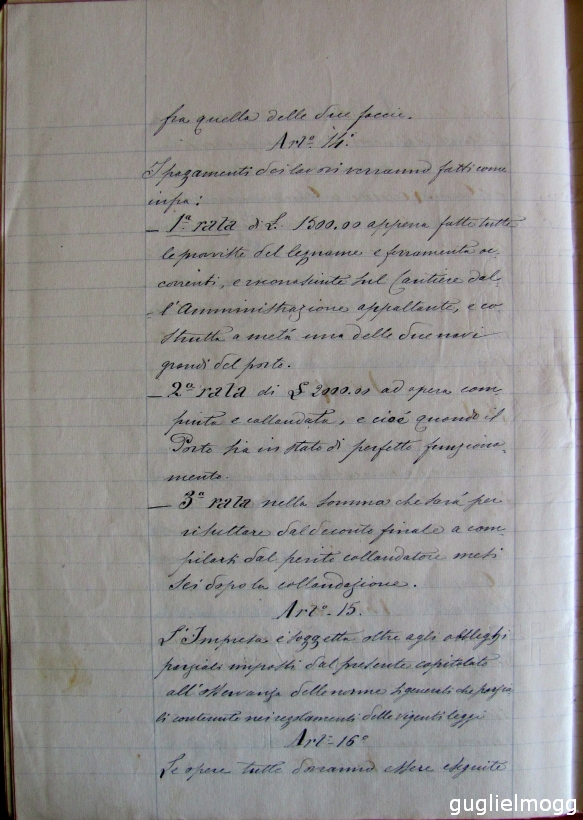 fra quella delle due faccie.
Art.º 14.º
I pagamenti dei lavori verranno fatti come
infra:
— 1ª rata di £. 1500.00 appena fatte tutte
le provviste del legname e ferramenta oc-
correnti, e riconosciute sul Cantiere dal-
l'Amministrazione appaltante, e co-
strutta a metà una delle due navi
grandi del porto.
— 2ª rata di £ 2000.00 ad opera com-
piuta e collaudata, e cioè quando il
Porto sia in stato di perfetto funziona-
mento.
— 3ª rata nella somma che sarà per
risultare dal deconto finale a com-
pilarsi dal perito collaudatore mesi
sei dopo la collaudazione.
Art.º 15.
L'Impresa è soggetta oltre agli obblighi
parziali imposti dal presente capitolato
all'osservanza delle norme generali che
li contenute nei regolamenti delle vigenti leggi
Art.º 16º
Le opere tutte dovranno essere eseguite
guglielmogg